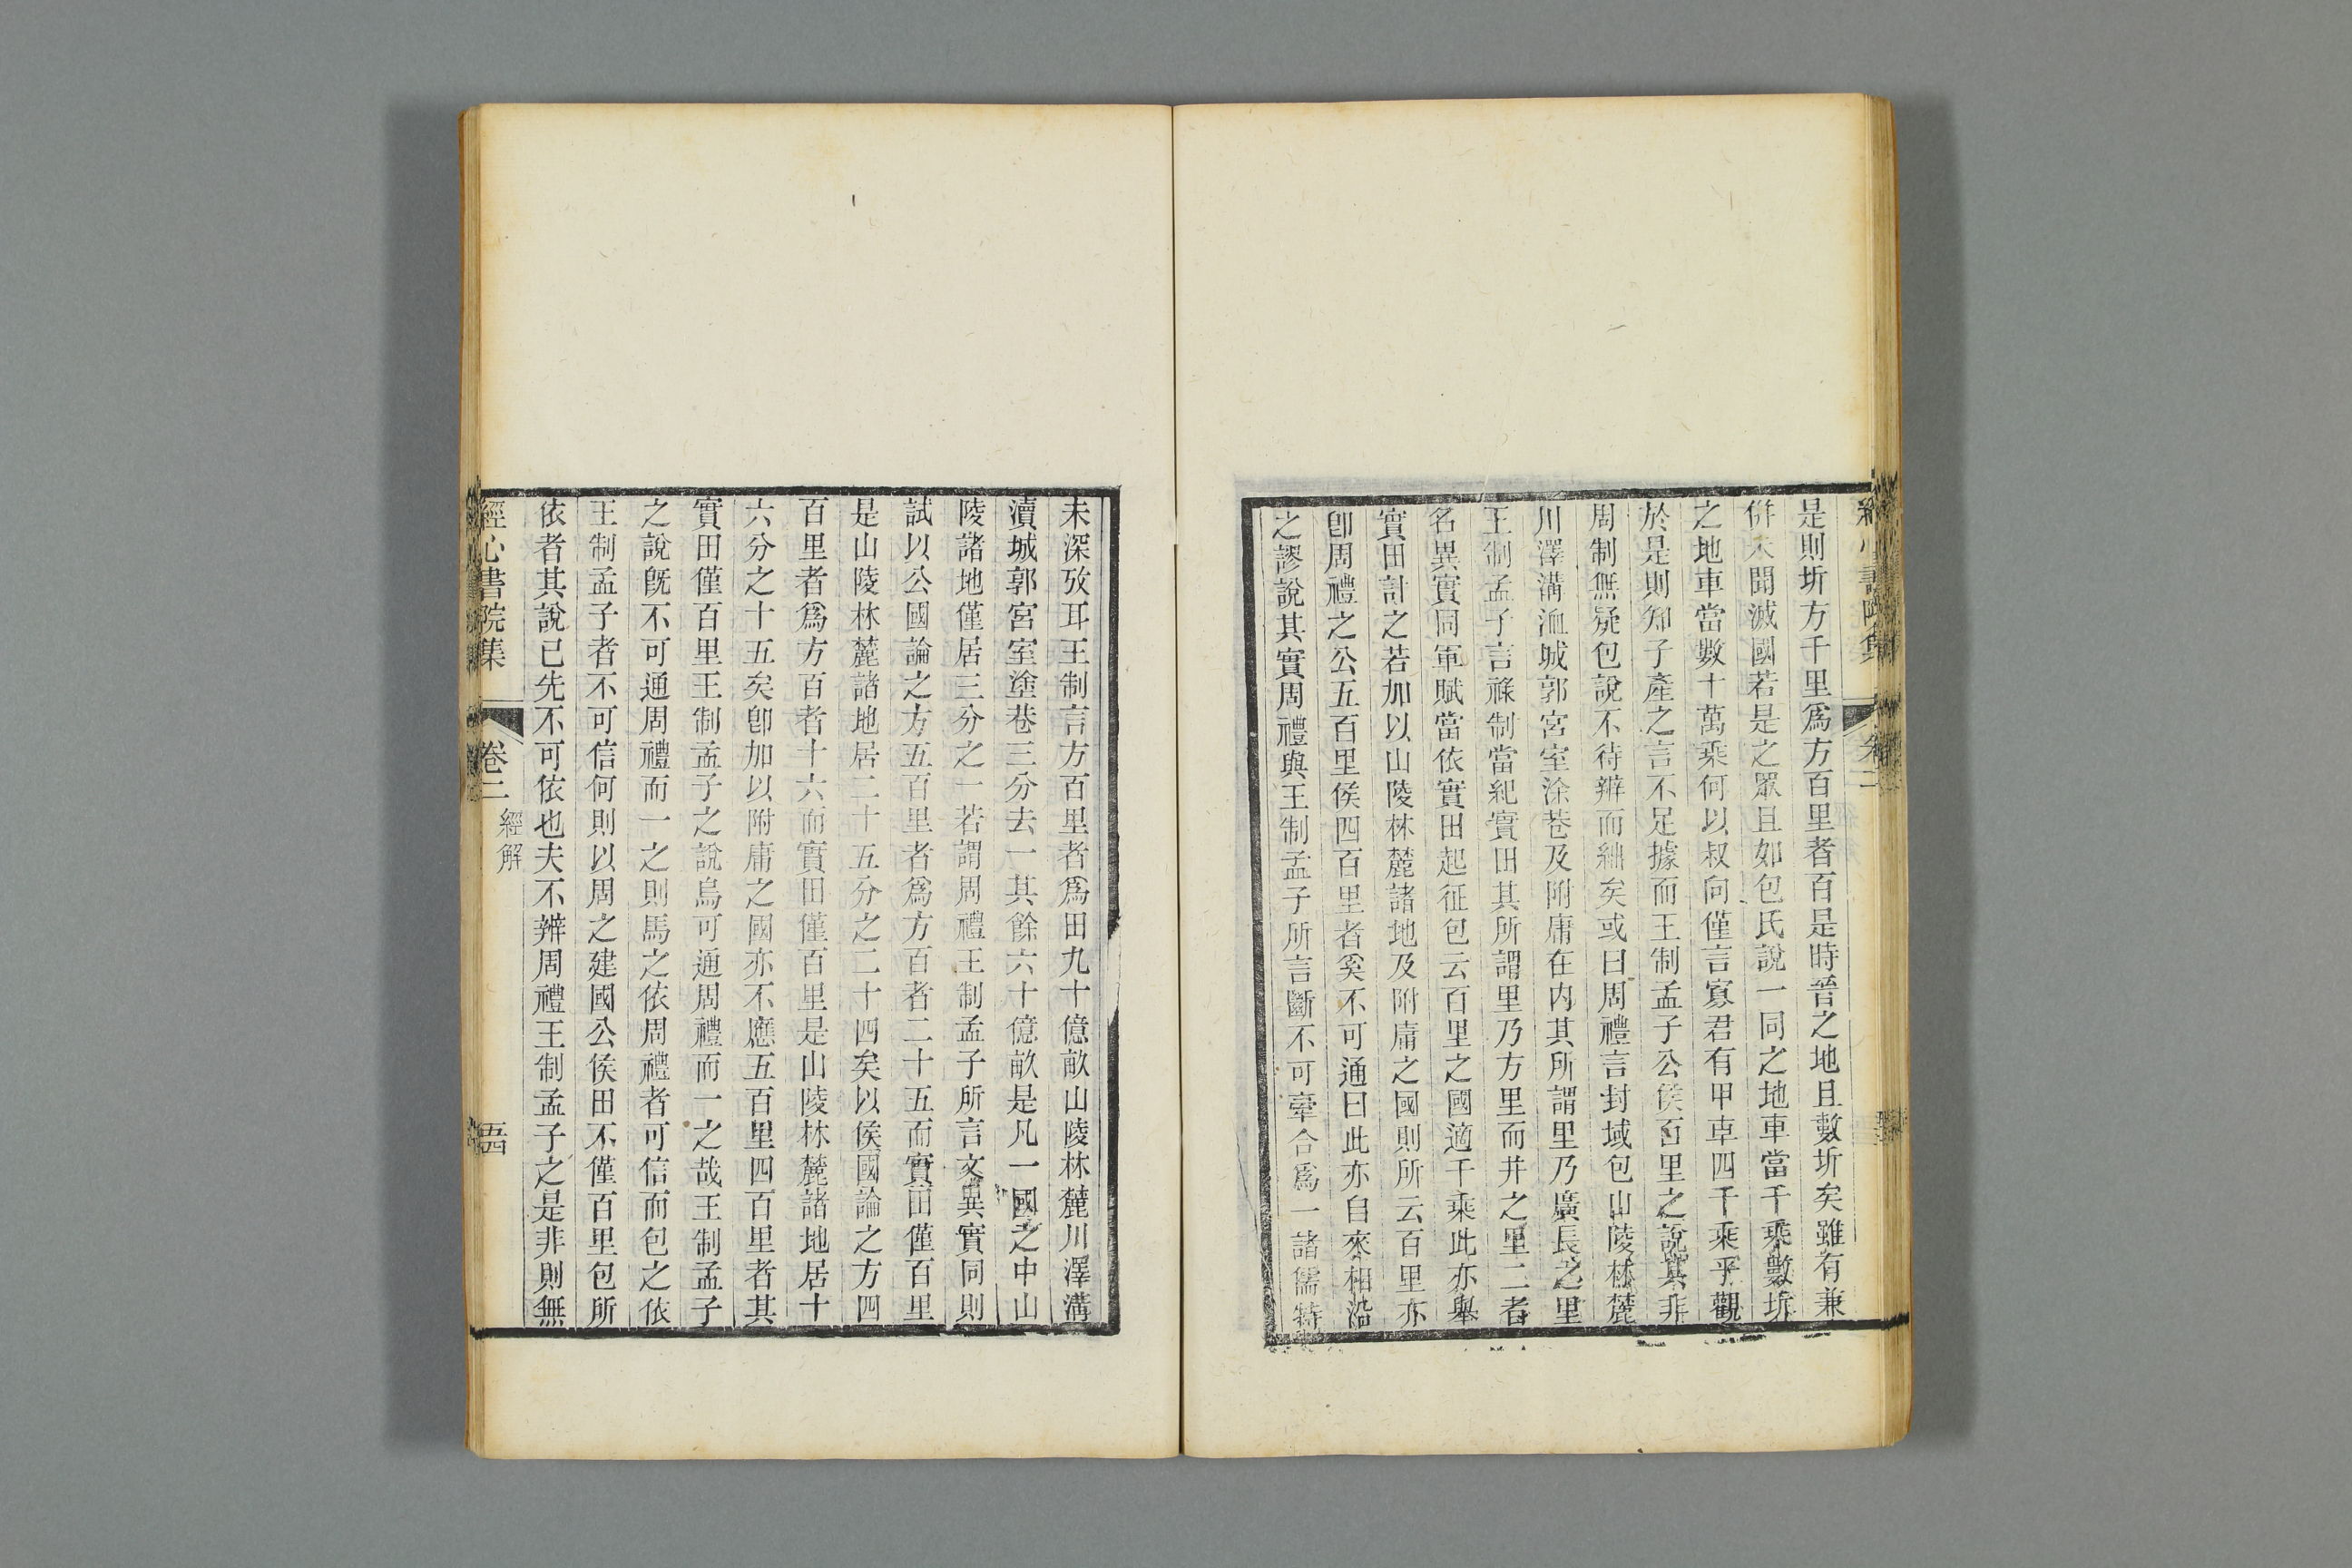 是則圻方千里爲方百里者百是時晉之地且數圻矣雖有兼
併未聞滅國若是之眾且如包氏說一同之地車當千乘數圻
之地車當數十萬乘何以叔向僅言寡君有甲車四千乘乎觀
於是則知子產之言不足據而王制孟子公侯百里之說其非
周制無疑包說不待辨而絀矣或曰周禮言封域包山陵林麓
川澤溝洫城郭宮室涂巷及附庸在內其所謂里乃廣長之里
王制孟子言祿制當紀實田其所謂里乃方里而井之里二者
名異實同軍賦當依實田起征包云百里之國適千乘此亦舉
實田計之若加以山陵林麓諸地及附庸之國則所云百里亦
卽周禮之公五百里侯四百里者奚不可通曰此亦自來相沿
之謬說其實周禮與王制孟子所言斷不可牽合爲一諸儒特
未深攷耳王制言方百里者爲田九十億畝山陵林麓川澤溝
瀆城郭宮室塗巷三分去一其餘六十億畝是凡一國之中山
陵諸地僅居三分之一若謂周禮王制孟子所言文異實同則
試以公國論之方五百里者爲方百者二十五而實田僅百里
是山陵林麓諸地居二十五分之二十四矣以侯國論之方四
百里者爲方百者十六而實田僅百里是山陵林麓諸地居十
六分之十五矣卽加以附庸之國亦不應五百里四百里者其
實田僅百里王制孟子之說烏可通周禮而一之哉王制孟子
之說旣不可通周禮而一之則馬之依周禮者可信而包之依
王制孟子者不可信何則以周之建國公侯田不僅百里包所
依者其說已先不可依也夫不辨周禮王制孟子之是非則無
經心書院集 卷二 經解